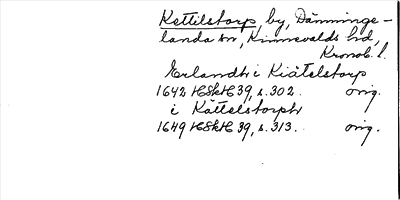 Kettilstorp by, Dänninge-
landa sn, Kinnevalds hd,
Kronob. l.
Erlandh i Kiätelstorp
1642 HSkH 39, s. 302. orig.
i Kättelstorph
1649 HSkH 39, s. 313. orig.